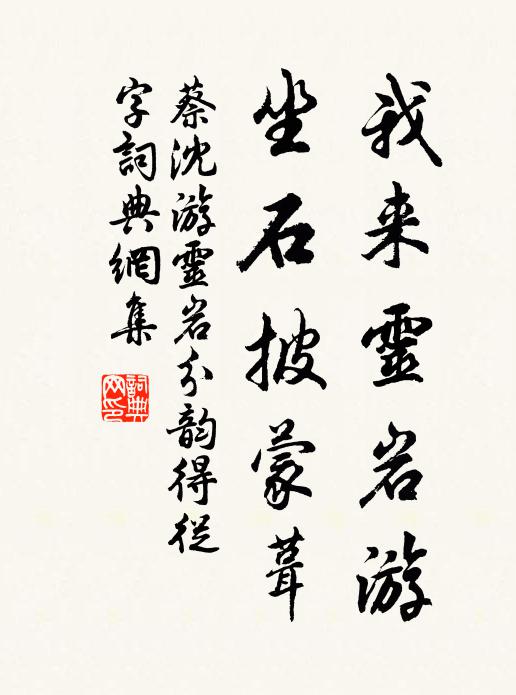 我来靈岩游
坐石披蒙茸
蔡沈游靈岩分韵得從
字詞典網集
詞典
网印